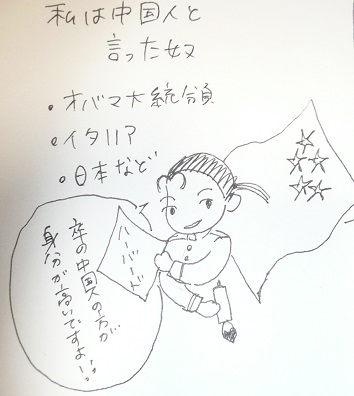 私は中国人と
言った奴
・オバマ大統領
・イタリア
・日本など
ハーバード
卒の中国人の方が
身分が高いですよ!!